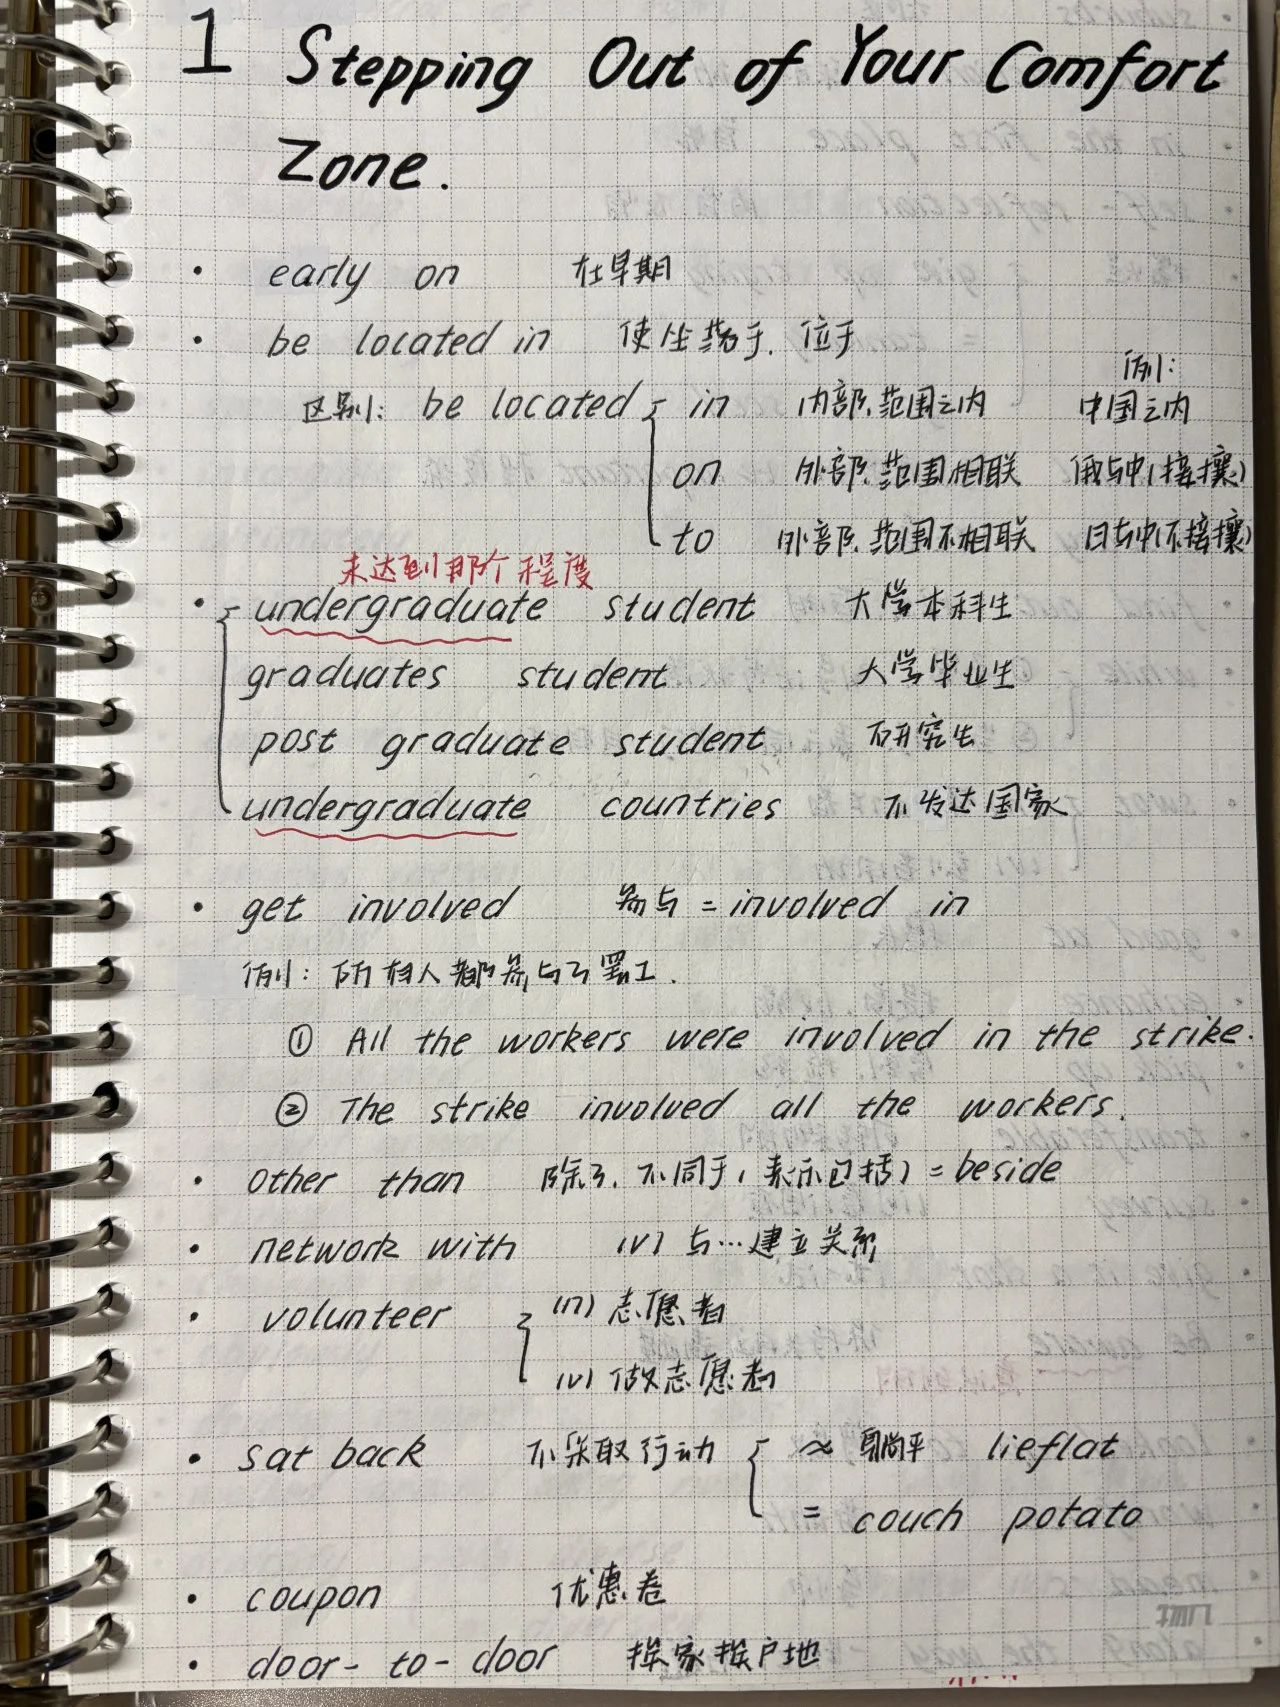 1 Stepping Out of Your Comfort
Zone.
• early on 在早期
• be located in 使坐落于、位于
例:
区别: be located { in 内部、范围之内 中国之内
on 外部、范围相联 俄与中(接攘)
to 外部、范围不相联 日与中(不接攘)
未达到那个程度
• { undergraduate student 大学本科生
graduates student 大学毕业生
post graduate student 研究生
undergraduate countries 不发达国家
• get involved 参与 = involved in
例: 所有人都参与了罢工.
① All the workers were involved in the strike.
② The strike involved all the workers.
• other than 除了、不同于(表示包括) = beside
• network with (v) 与…建立关系
• volunteer { (n) 志愿者
(v) 做志愿者
• sat back 不采取行动 { ≈ 躺平 lieflat
= couch potato
• coupon 优惠卷
• door-to-door 挨家挨户地